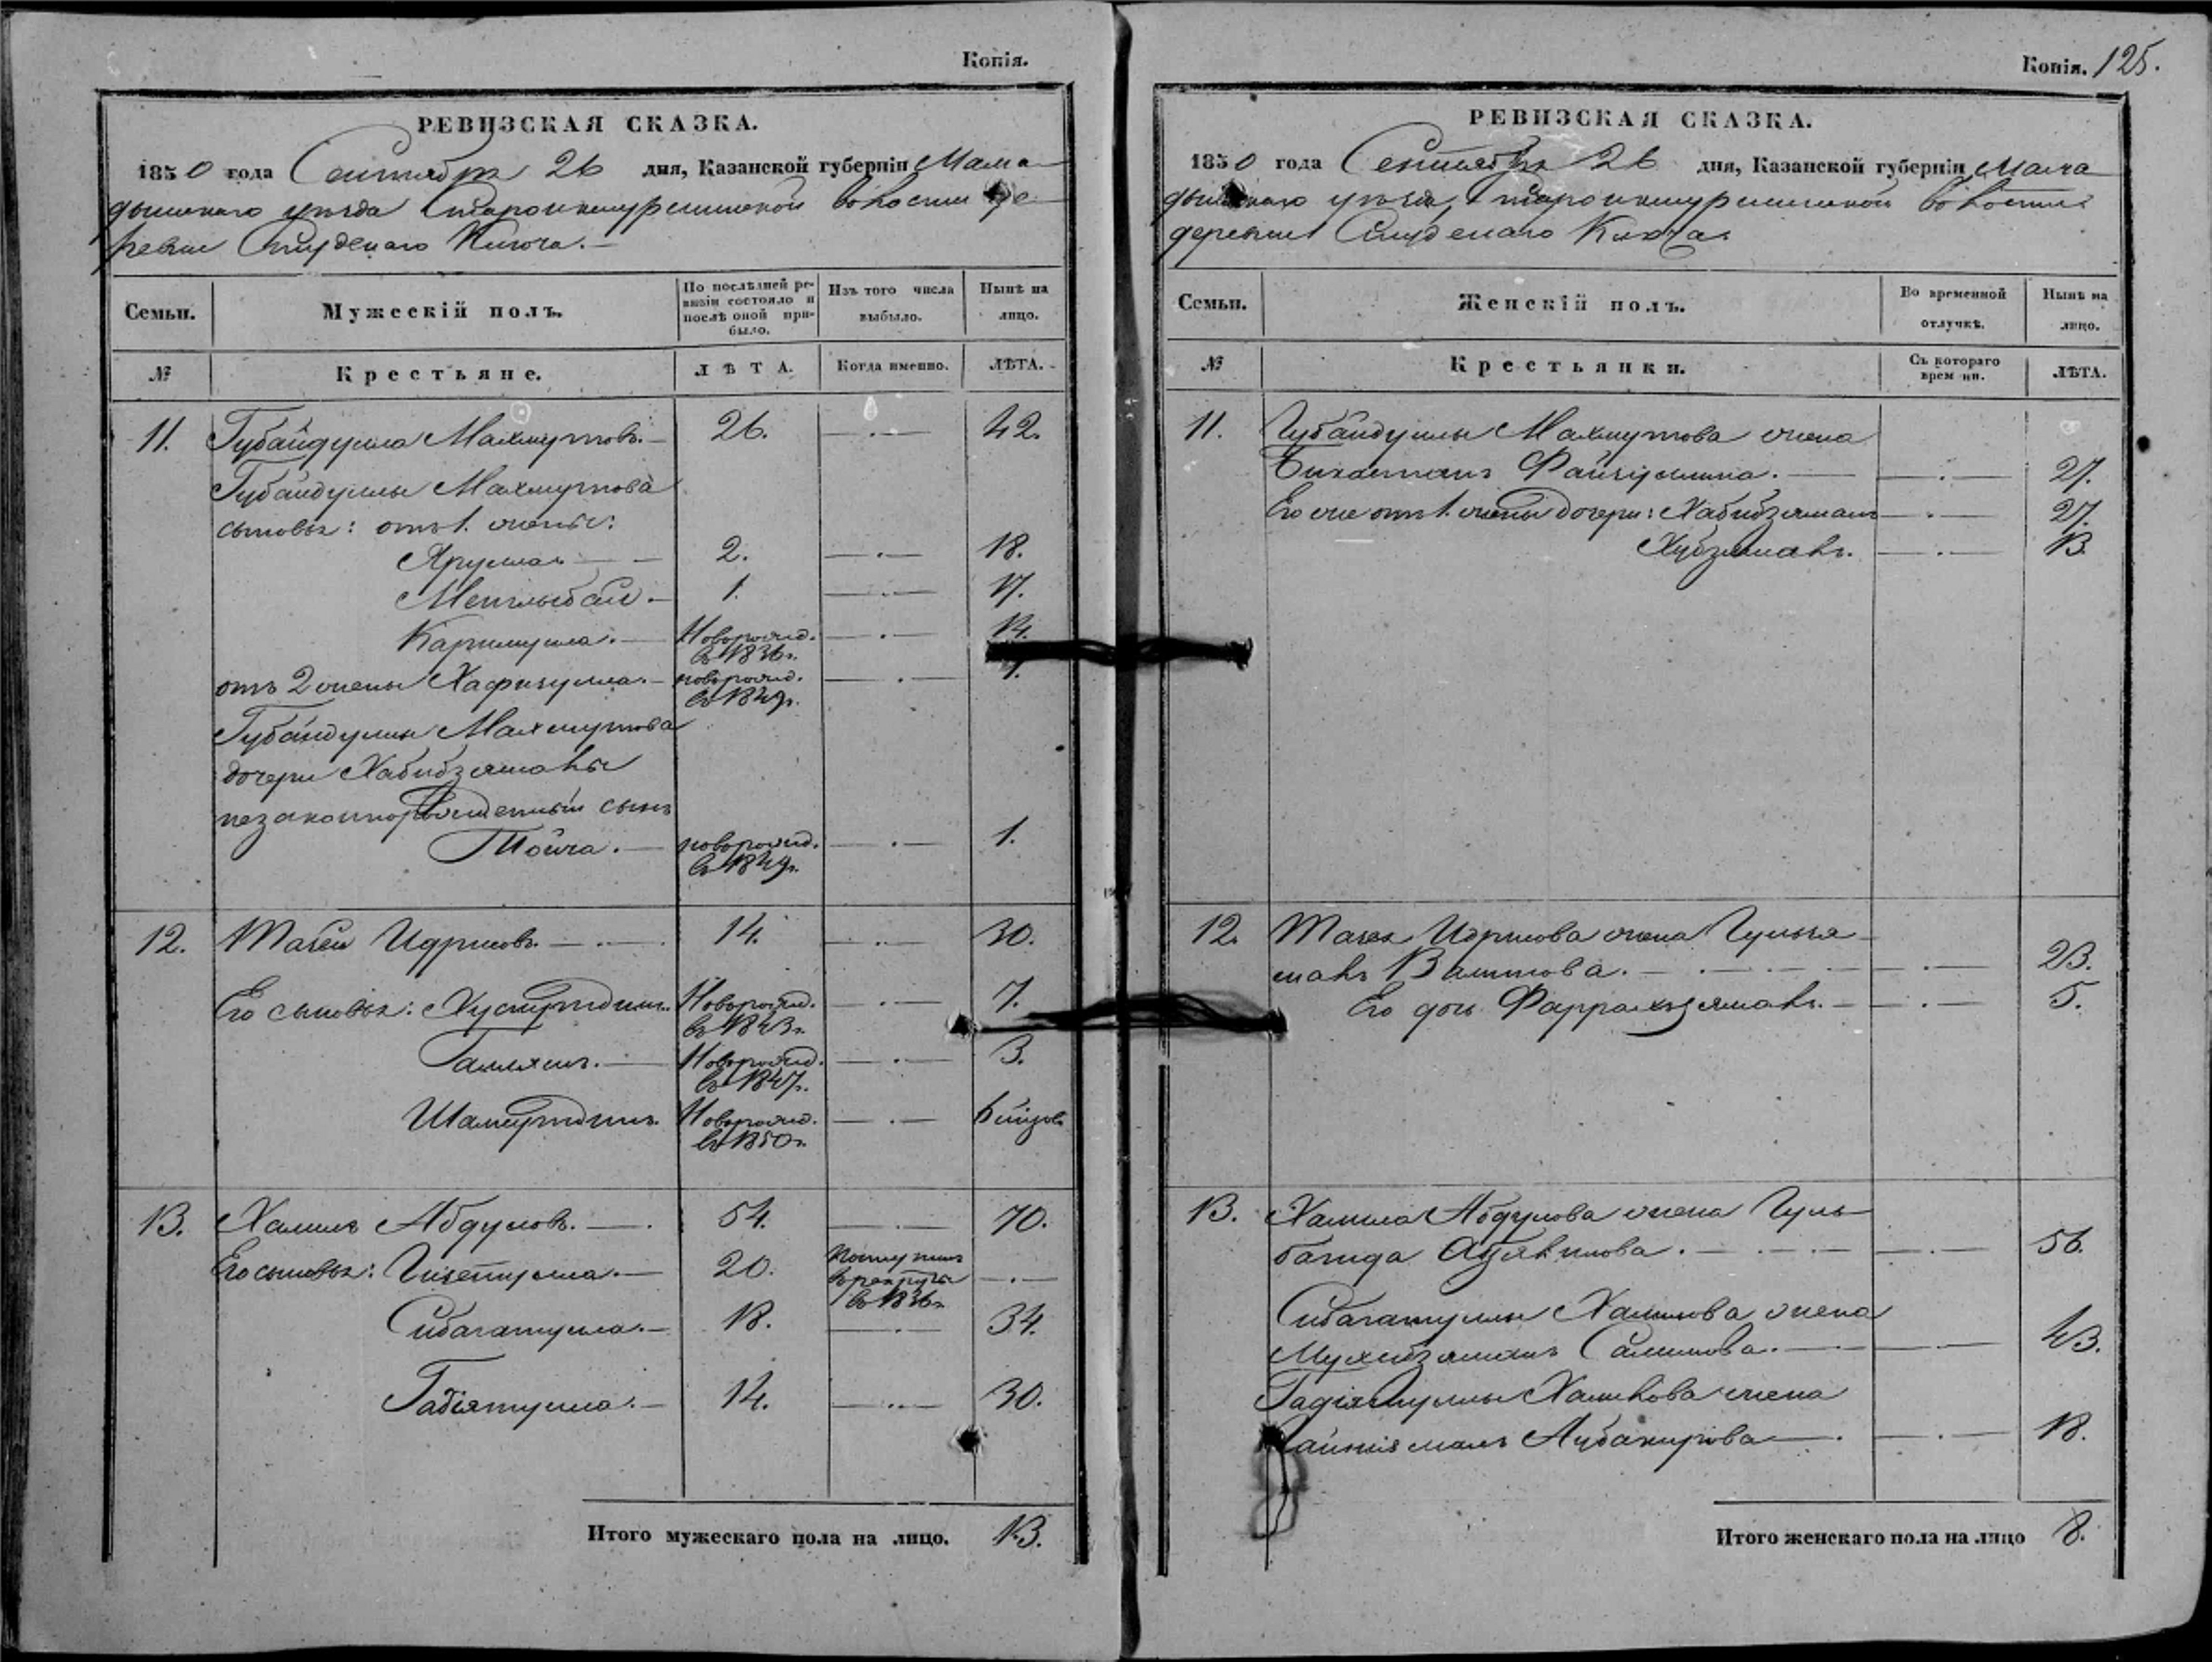 Копія.
РЕВИЗСКАЯ СКАЗКА.
1850 года Сентября 26 дня, Казанской губерніи Мама
дышскаго уѣзда Староикшурминской волости де
ревни Студенаго Ключа.
Семьи.
Мужескій полъ.
По послѣдней ре-
визіи состояло и
послѣ оной при-
было.
Изъ того числа
выбыло.
Нынѣ на
лицо.
№
Крестьяне.
ЛѢТА.
Когда именно.
ЛѢТА.
11. Губайдулла Махмутовъ. 26. 42.
Губайдуллы Махмутова
сыновья: отъ 1. жены:
Ярулла 2. 18.
Менглыбай 1. 17.
Каримулла. Новорожд. 14.
въ 1836г.
отъ 2 жены Хафизулла. новорожд. 1.
въ 1849г.
Губайдуллы Махмутова
дочери Хабибзяманы
незаконнорожденный сынъ
новорожд. 1.
въ 1849г.
12. Идрисовъ. 14. 30.
Его сыновья: Хуснутдинъ. Новорожд. 7.
въ 1843г.
Новорожд. 3.
въ 1847г.
Шамсутдинъ. Новорожд.
въ 1850г.
13. Халилъ Абдуловъ. 54. 70.
Его сыновья: 20. Поступилъ
въ рекруты
въ 1836г.
Сибагатулла. 18. 34.
Гадіятулла. 14. 30.
Итого мужескаго пола на лицо. 13.
Копія. 125.
РЕВИЗСКАЯ СКАЗКА.
1850 года Сентября 26 дня, Казанской губерніи Мама
дышскаго уѣзда Староикшурминской волости
деревни Студенаго Ключа
Семьи.
Женскій полъ.
Во временной
отлучкѣ.
Нынѣ на
лицо.
№
Крестьянки.
Съ котораго
врем ни.
ЛѢТА.
11. Губайдуллы Махмутова жена
Файзуллина. 27.
Его же отъ 1. жены дочери: Хабибзямалъ 27.
Хубзямалъ. 13.
12. Идрисова жена Гульзя
малъ Валитова. 23.
Его дочь Фаррахзямалъ. 5.
13. Халила Абдулова жена Гуль
56.
Сибагатуллы Халилова жена
Салимова. 43.
Гадіятуллы Халилова жена
Аубакирова 18.
Итого женскаго пола на лицо 8.